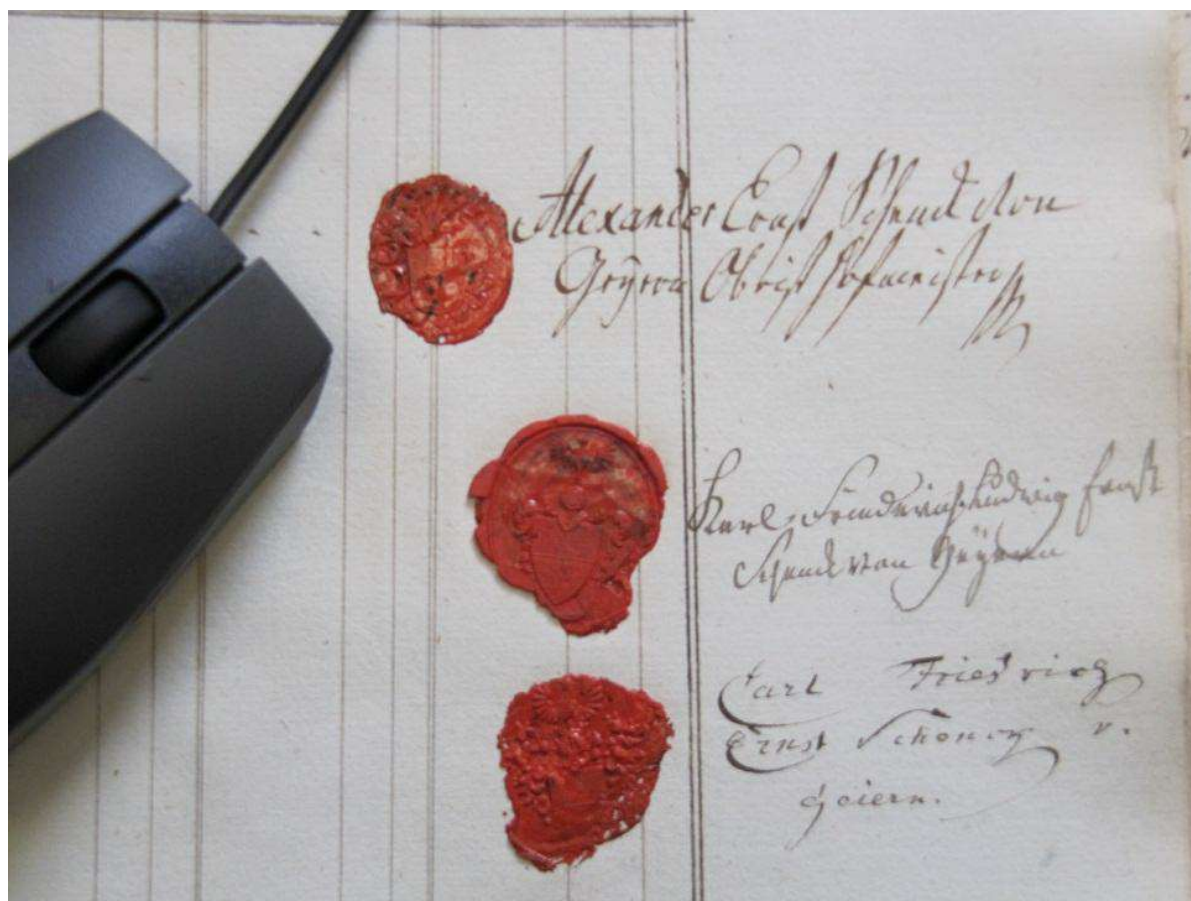 Alexander Ernst Schenck Von
Geÿern Obrist Hofmeister
Karl Friedrich Ludwig Ernst
Schenck von Geÿern
Carl Friedrich
Ernst Schenck v.
Geiern.